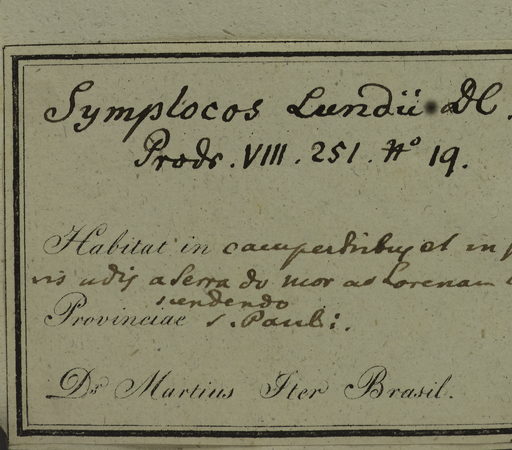 Symplocos Lundii DC.
Prodr. VIII. 251. No 19.
Habitat in campestribus et in
vis udis a Serra do mor ad Lorenam
scendendo
Provinciae S. Pauli.
Dr Martius Iter Brasil.